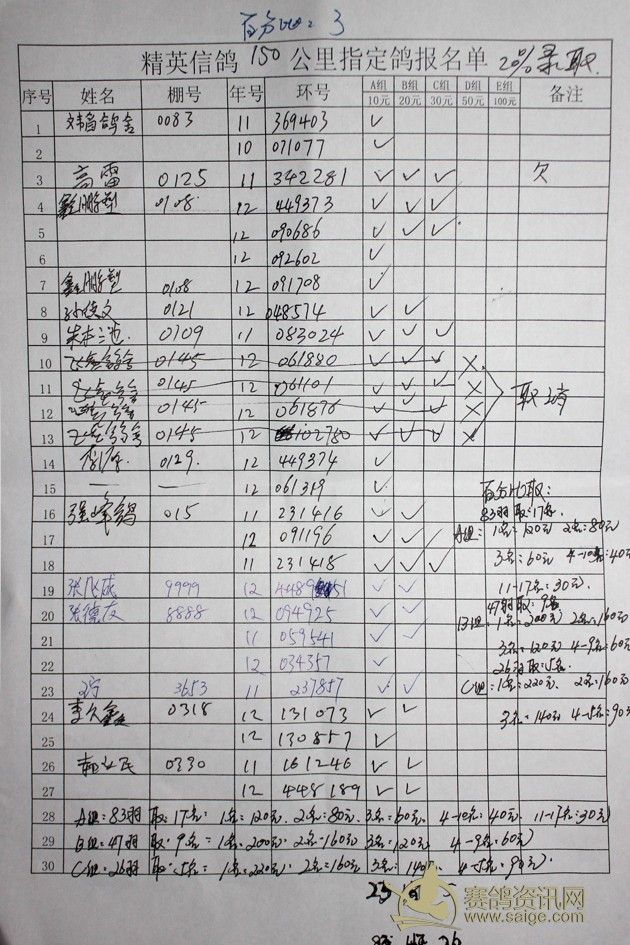 百分比：3
精英信鸽 150 公里指定鸽报名单 20% 录取.
序号 姓名 棚号 年号 环号 A组 10元 B组 20元 C组 30元 D组 50元 E组 100元 备注
1 鸽舍 0083 11 369403 ✓
2 10 071077 ✓
3 高雷 0125 11 342281 ✓ ✓ ✓ 欠
4 鑫鹏塑 0108 12 449373 ✓ ✓ ✓
5 12 090686 ✓ ✓ ✓
6 12 092602 ✓
7 鑫鹏塑 0108 12 091708 ✓
8 孙俊文 0121 12 048574 ✓ ✓
9 0109 11 083024 ✓ ✓ ✓
10 0145 12 061880 ✓ ✓ ✓ ×
11 0145 12 061101 ✓ ✓ ✓ × 取消
12 0145 12 061876 ✓ ✓ ✓ ×
13 0145 12 102780 ✓ ✓ ✓ ×
14 0129. 12 449374 ✓
15 — — 12 061319 ✓
百分比取：
16 强峰鸽 015 11 231416 ✓ ✓
83羽取：17名
17 12 091196 ✓ ✓
A组：1名：120元 2名：80元
18 11 231418 ✓ ✓ ✓
3名：60元 4-10名：40元
19 张飞成 9999 12 ✓ ✓
11-17名：30元).
20 张德友 8888 12 094925 ✓ ✓
47羽取：9名
B组：1名：200元 2名：160元
21 11 059541 ✓ ✓
3名：120元 4-9名：60元
22 12 034357 ✓
26羽取：5名.
23 3653 11 237857 ✓ ✓
C组：1名：220元. 2名：160元
24 李久鑫 0318 12 131073 ✓ ✓
3名：140元 4-5名：90元
25 12 130857 ✓
26 郝立民 0330 11 161246 ✓ ✓
27 12 448189 ✓ ✓
28 A组：83羽 取：17名： 1名：120元. 2名：80元. 3名：60元. 4-10名：40元. 11-17名：30元)
29 B组：47羽 取：9名： 1名：200元. 2名：160元 3名：120元 4-9名：60元)
30 C组：26羽 取：5名： 1名：220元) 2名：160元 3名：140元 4-5名：90元).
23
赛鸽资讯网
www.saige.com
83 47 26